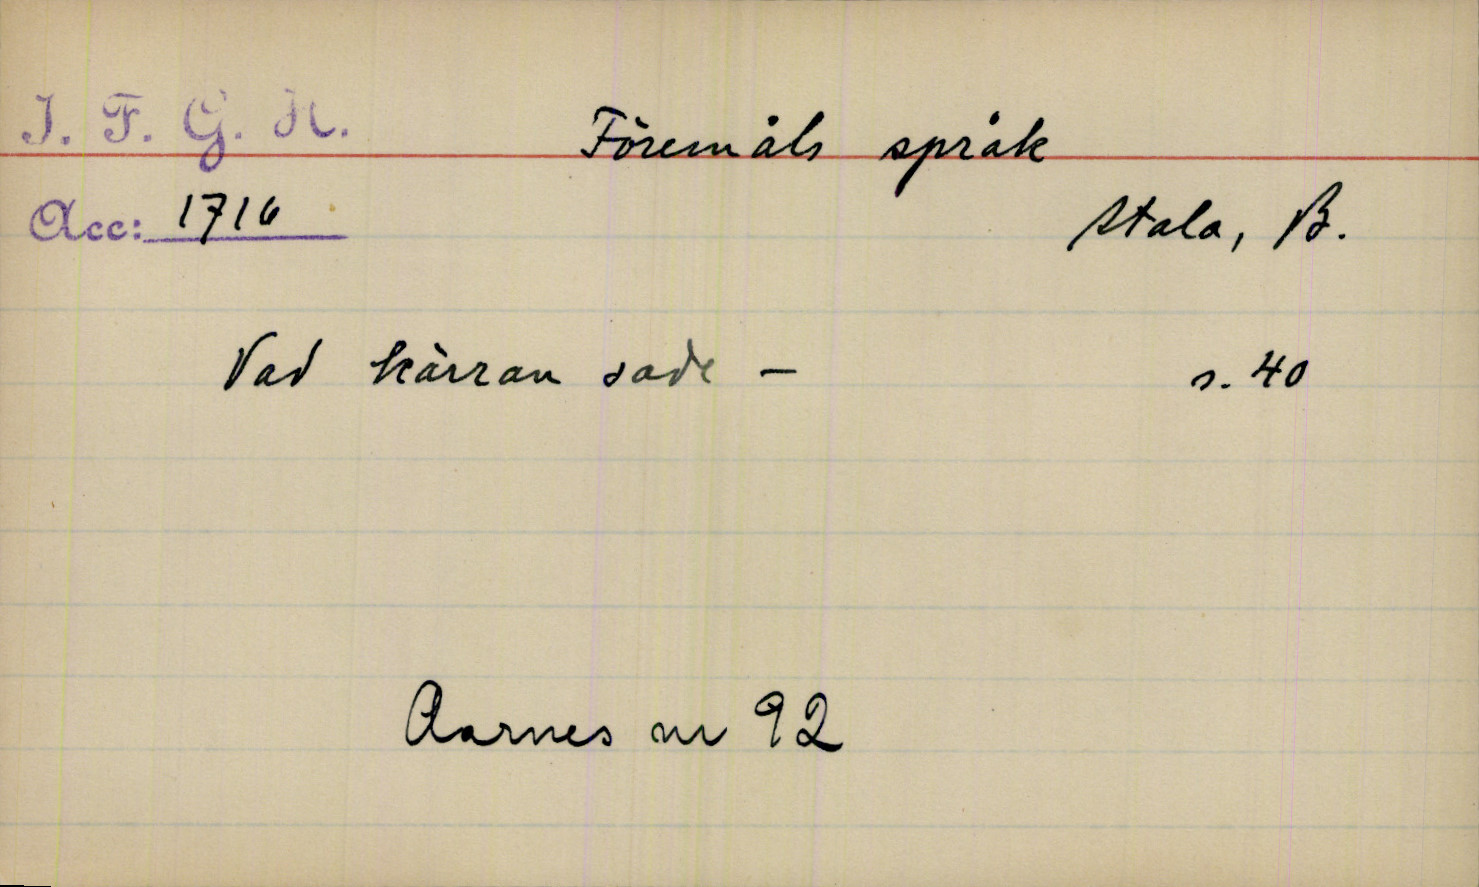 I. F. G. H.
Föremåls språk
Acc: 1716
Stala, B.
Vad kärran sade – s. 40
Aarnes nr 92